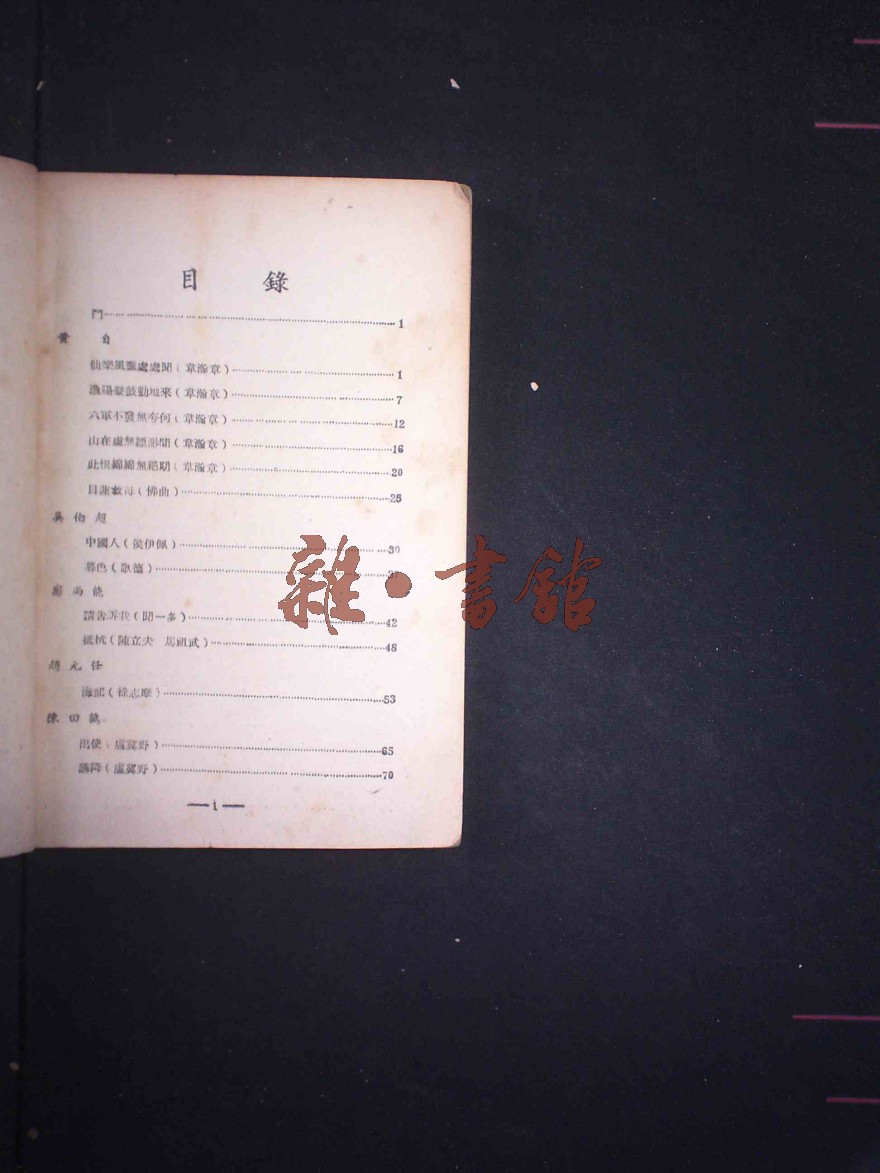 目錄
門……1
黃自
仙樂風飄處處聞(韋瀚章)……1
漁陽鼙鼓動地來(韋瀚章)……7
六軍不發無奈何(韋瀚章)……12
山在虛無縹渺間(韋瀚章)……16
此恨綿綿無絕期(韋瀚章)……20
目蓮救母(佛曲)……25
吳伯超
中國人(侯伊佩)……30
暮色(歌德)……37
應尚能
請告訴我(聞一多)……42
抵抗(陳立夫 馬祖武)……48
趙元任
海韻(徐志摩)……53
陳田鶴
出使(盧冀野)……65
誘降(盧冀野)……70
—i—
雜·書館